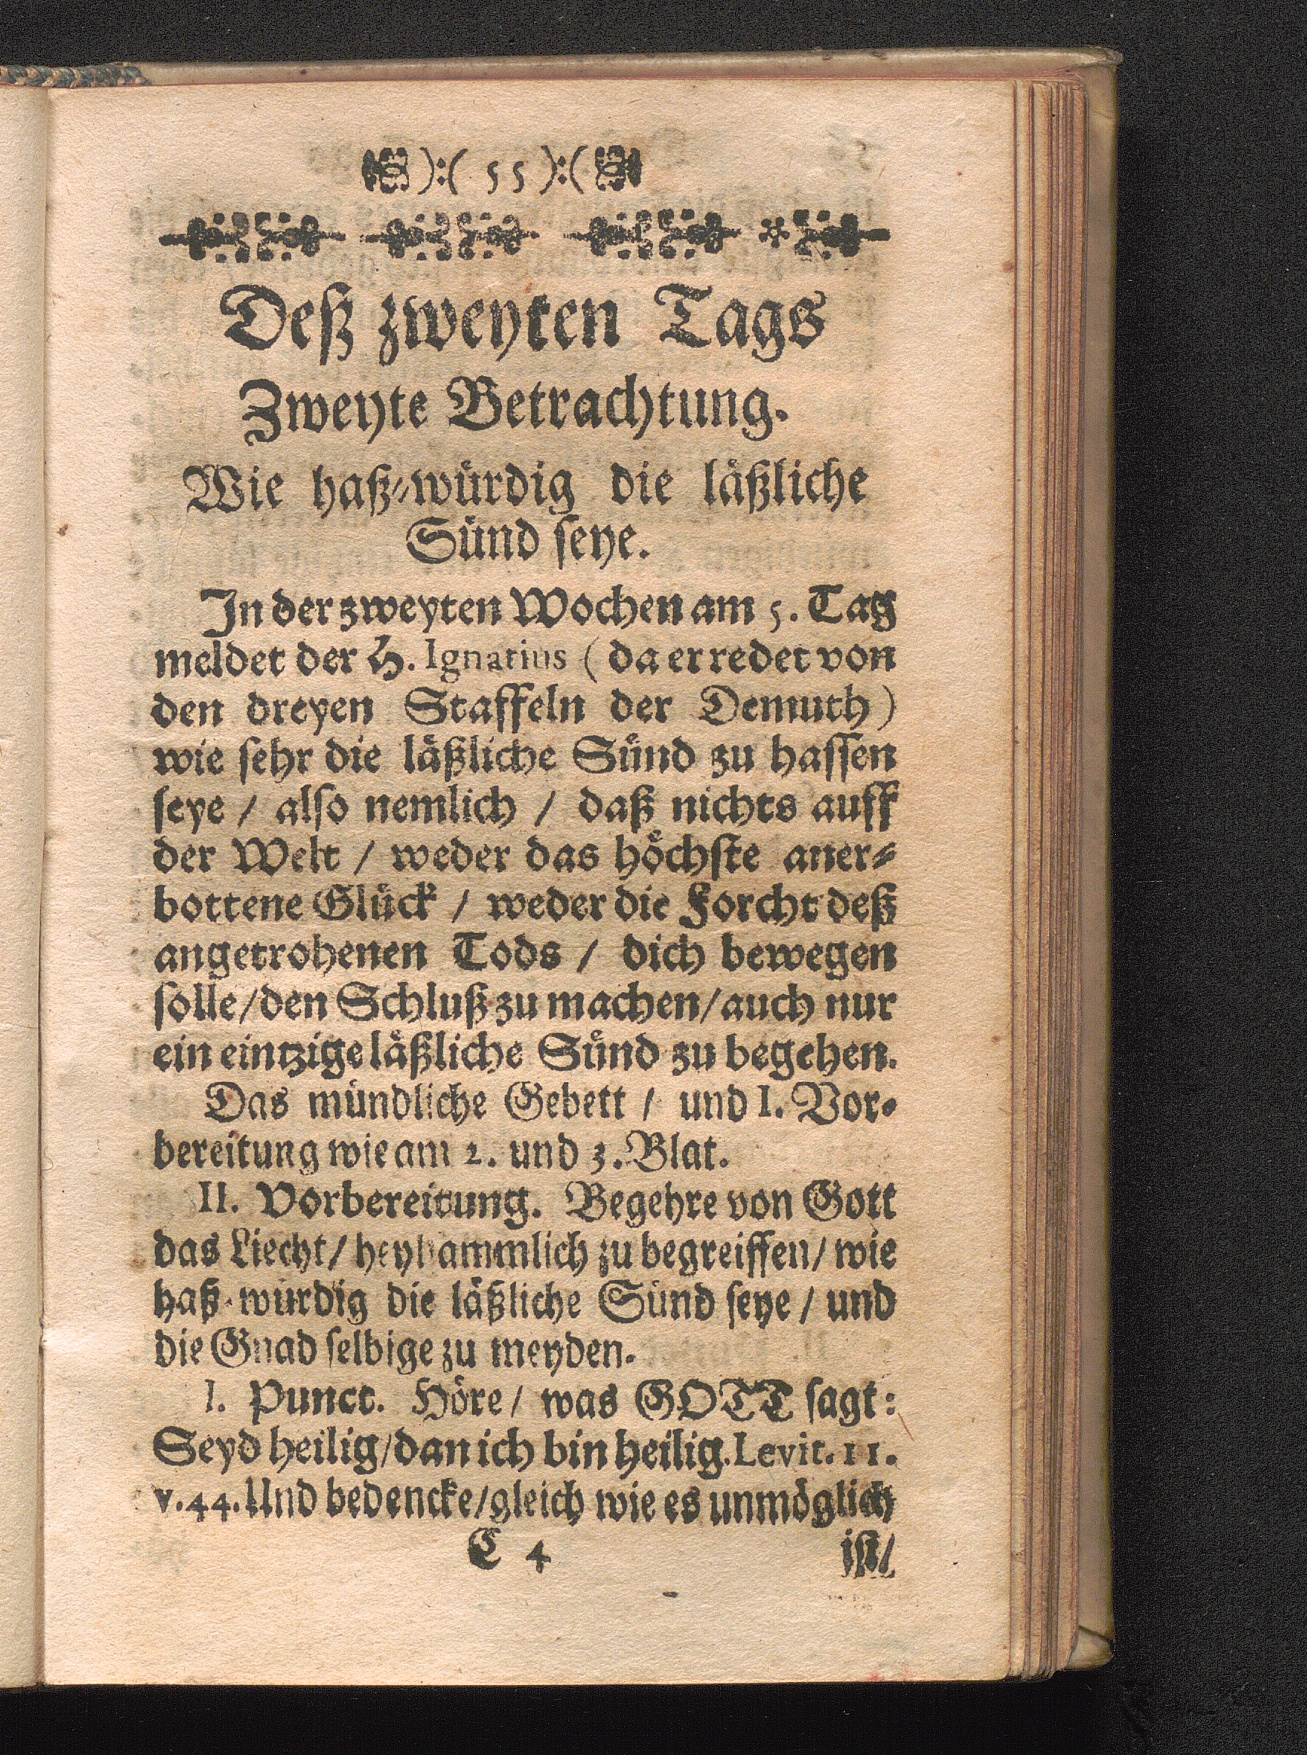 ):( 55 ):(
Deß zweyten Tags
Zweyte Betrachtung.
Wie haß-würdig die läßliche
Sünd seye.
In der zweyten Wochen am 5. Tag
meldet der H. Ignatius ( da er redet von
den dreyen Staffeln der Demuth )
wie sehr die läßliche Sünd zu hassen
seye / also nemlich / daß nichts auff
der Welt / weder das höchste aner-
bottene Glück / weder die Forcht deß
angetrohenen Tods / dich bewegen
solle / den Schluß zu machen / auch nur
ein eintzige läßliche Sünd zu begehen.
Das mündliche Gebett / und I. Vor-
bereitung wie am 2. und 3. Blat.
II. Vorbereitung. Begehre von Gott
das Liecht / heylsammlich zu begreiffen / wie
haß-würdig die läßliche Sünd seye / und
die Gnad selbige zu meyden.
I. Punct. Höre / was GOTT sagt:
Seyd heilig / dan ich bin heilig. Levit. 11.
v. 44. Und bedencke / gleich wie es unmöglich
C 4 ist /